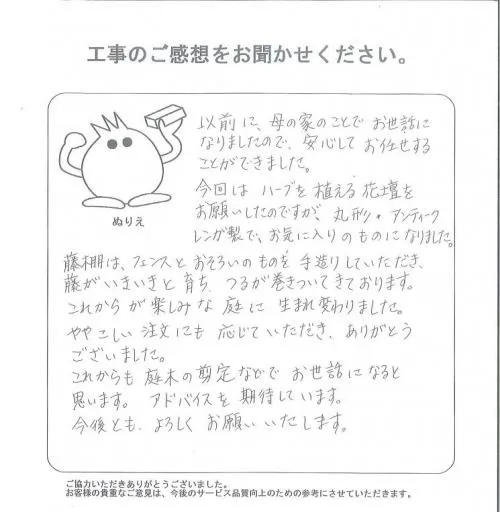 工事のご感想をお聞かせください。
以前に、母の家のことでお世話に
なりましたので、安心してお任せする
ことができました。
今回はハーブを植える花壇を
お願いしたのですが、丸形、アンティーク
レンガ製で、お気に入りのものになりました。
ぬりえ
藤棚は、フェンスとおそろいのものを手造りしていただき、
藤がいきいきと育ち、つるが巻きついてきております。
これからが楽しみな庭に生まれ変わりました。
ややこしい注文にも応じていただき、ありがとう
ございました。
これからも庭木の剪定などでお世話になると
思います。アドバイスを期待しています。
今後とも、よろしくお願いいたします。
ご協力いただきありがとうございました。
お客様の貴重なご意見は、今後のサービス品質向上のための参考にさせていただきます。